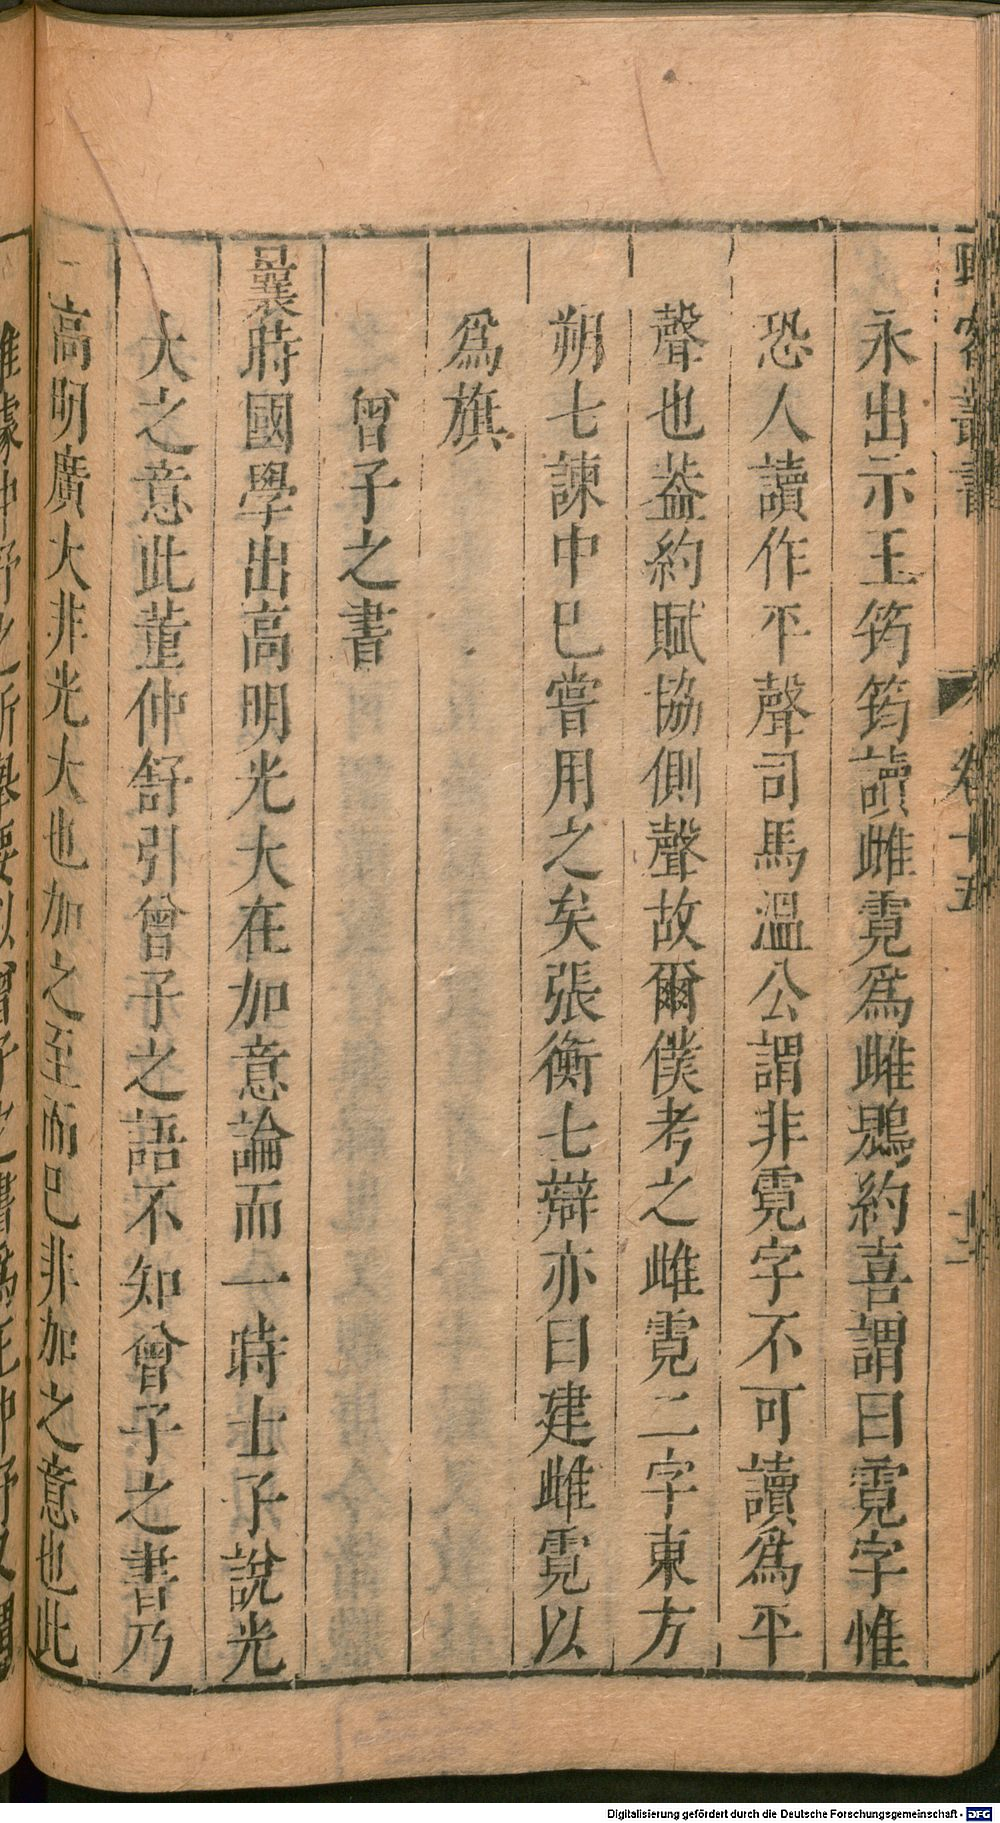 野客叢書 卷十五 十二
永出示王筠筠讀雌霓爲雌鶂約喜謂曰霓字惟
恐人讀作平聲司馬溫公謂非霓字不可讀爲平
聲也葢約賦協側聲故爾僕考之雌霓二字東方
朔七諫中巳嘗用之矣張衡七辯亦曰建雌霓以
爲旗
曾子之書
曩時國學出高明光大在加意論而一時士子說光
大之意此董仲舒引曾子之語不知曾子之書乃
高明廣大非光大也加之至而巳非加之意也此
雖據仲舒之所舉要以曾子之書爲正仲舒又
Digitalisierung gefördert durch die Deutsche Forschungsgemeinschaft - DFG